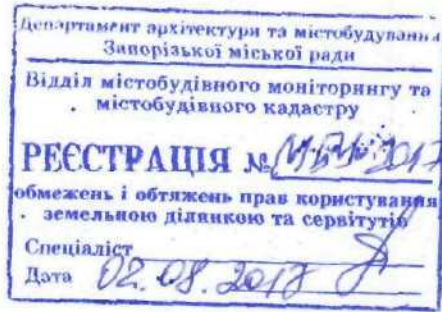 Департамент архітектури та містобудування
Запорізької міської ради
Відділ містобудівного моніторингу та
містобудівного кадастру
РЕЄСТРАЦІЯ № 2017
обмежень і обтяжень прав користування
земельною ділянкою та сервітутів
Спеціаліст
Дата 02.08.2017